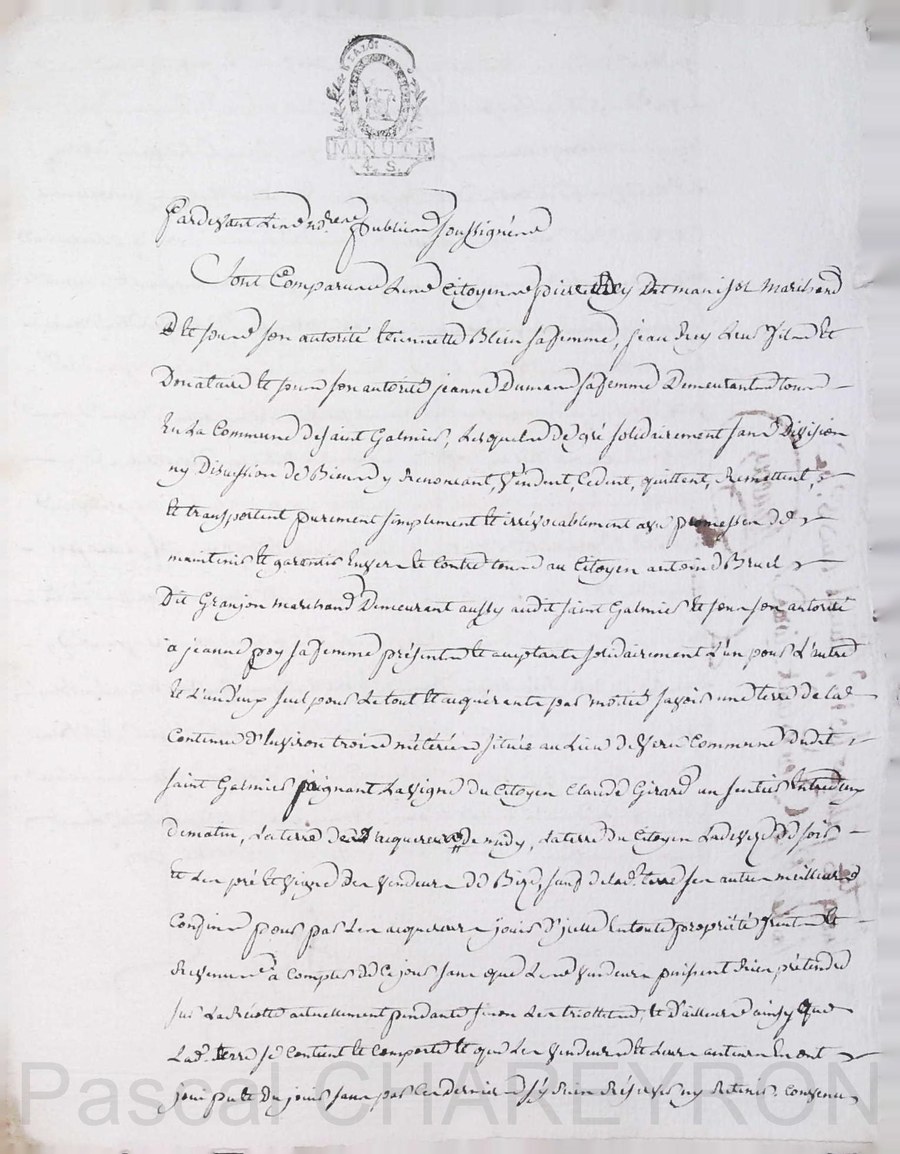 LA LOI
MINUTE
4. S.
Pardevant Les no.res publics soussignés
Sont Comparus Les Citoyens pierre Rey Dit manisol Marchand
Et sous son autorité Etiennette Blein sa femme, jean Rey Leur fils et
Donataire et sous son autorité jeanne Dumas sa femme Demeurants tous
En La Commune de Saint Galmier, Lesquels de gré solidairement sans Division
ny Discussion de Biens y Renonçant, Vendent, Cedent, quittent, Remettent,
et transportent purement simplement et irrévocablement avec promesse de
maintenir et garantir Envers et Contre tous au Citoyen antoine Bruel
Dit Granjon marchand Demeurant aussy audit saint Galmier et sous son autorité
à jeanne poy sa femme présents et acceptants solidairement L'un pour L'autre
et L'un d'eux seul pour Le tout et acquérants par moitié savoir une terre de la
Contenue d'Environ trois métérées située au Lieu de Commune dudit
saint Galmier joignant La vigne du Citoyen Claude Girard un sentier Entredeux
de matin, La terre des acquereurs de midy, La terre du Citoyen Ladevèze de soir
et Les pré et vigne des vendeurs de Bize, sauf de lad.e terre ses autres meilleurs
Confins pour par Les acquereurs jouir d'icelle En toute propriété fruits et
Revenus à Compter de Ce jour sans que Les vendeurs puissent Rien prétendre
sur La Récolte actuellement pendante sinon Les, et d'ailleurs ainsy que
Lad.e terre se Contient et Comporte et que Les vendeurs et Leurs auteurs En ont
joui pu et du jouir sans par Ces derniers s'y Rien Réserver ny Retenir. Convenu
Pascal CHAREYRON